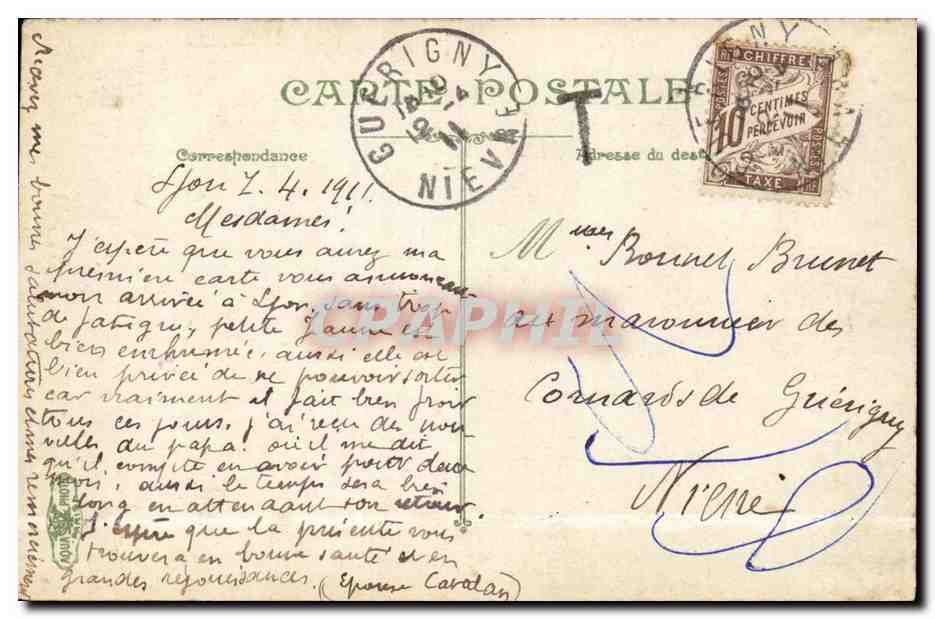 CARTE POSTALE
GUERIGNY
NIEVRE
10
14-4
11
T
POSTES
CHIFFRE
10 CENTIMES
A PERCEVOIR
TAXE
Correspondance
Adresse du dest
Lyon 7.4.1911
Mesdames!
J'espère que vous aurez ma
première carte vous annoncant
mon arrivée à Lyon, sans trop
de fatigue, petite Jeanne est
bien enrhumée, aussi elle est
bien privée de ne pouvoir sortir
car vraiment il fait bien froid
tous ces jours. j'ai reçu des nou
velles du papa. où il me dit
qu'il compte en avoir pour deux
mois, aussi le temps sera bien
long en attendant son retour.
J'espère que la présente vous
trouvera en bonne santé et en
grandes rejouissances.
(Epouse Cavalan)
Recevez mes bonnes salutations et mes remerciements
Mmes Bonnet Brunet
au maronnier des
Cornards de Guérigny
Nievre
NOVA PHOTO
CPAPHIL